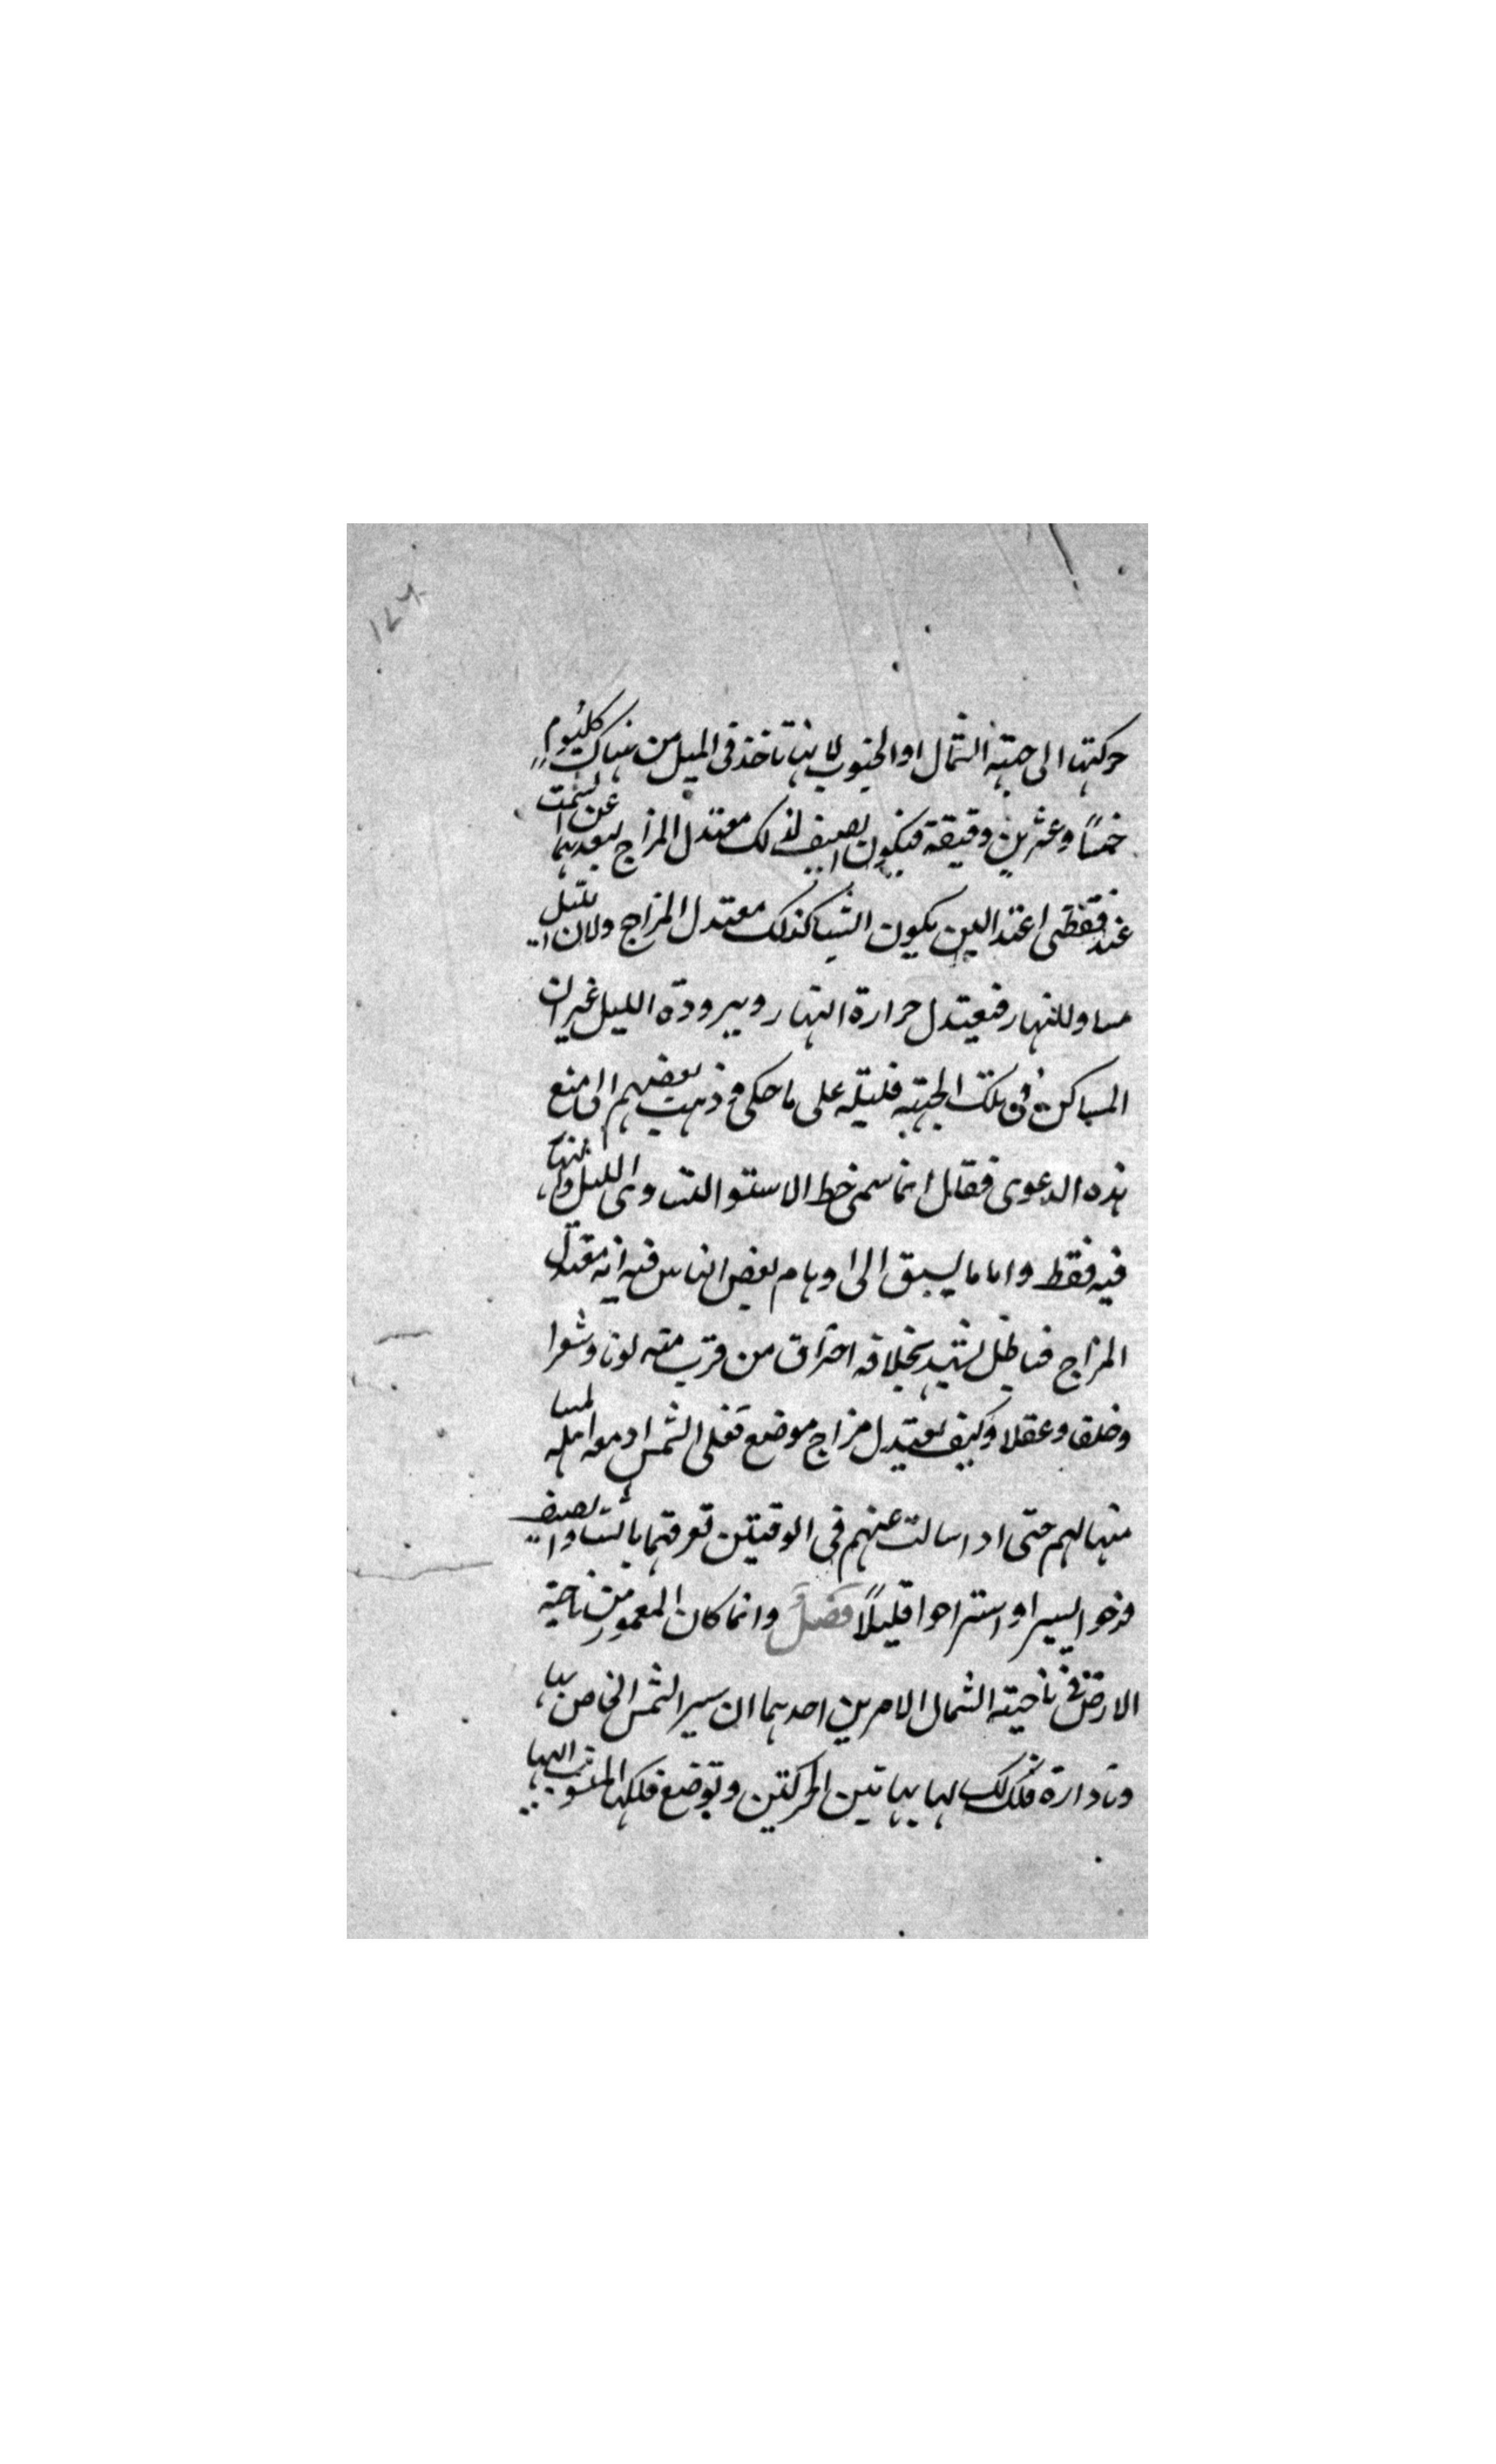 ١٢٤
حركتها الى جهته الشمال او الجنوب لانها تاخذ فى الميل من هناك كل يوم
خمسًا وعشرين دقيقة فيكون الصيف لذلك معتدل المزاج لبعدها عن السمت
عند نقطتى اعتدالين يكون الشتا كذلك معتدل المزاج ولان الليل
مساو للنهار فيعتدل حرارة النهار وببرودة الليل غير ان
المساكن فى تلك الجهته قليله على ما حكى وذهب بعضهم الى منع
هذه الدعوى فقال انما سمى خط الاستوا لتساوى الليل والنهار
فيه فقط واما ما يسبق الى اوهام بعض الناس فيه انه معتدل
المزاج فباطل يشهد بخلافه احتراق من قرب منه لونا وشعرا
وخلقا وعقلا وكيف يعتدل مزاج موضع تغلى الشمس ادمغه اهله
منها لهم حتى اذا سالت عنهم فى الوقتين تعرفتهما بالشتا والصيف
يسيرا واستراحوا قليلًا فصل وانما كان المعمور من ناحية
الارض فى ناحيته الشمال لامرين احدهما ان سير الشمس الخاص بها
وبادارة فلك لها بهاتين الحركتين وبوضع فلكها المنسوب اليها